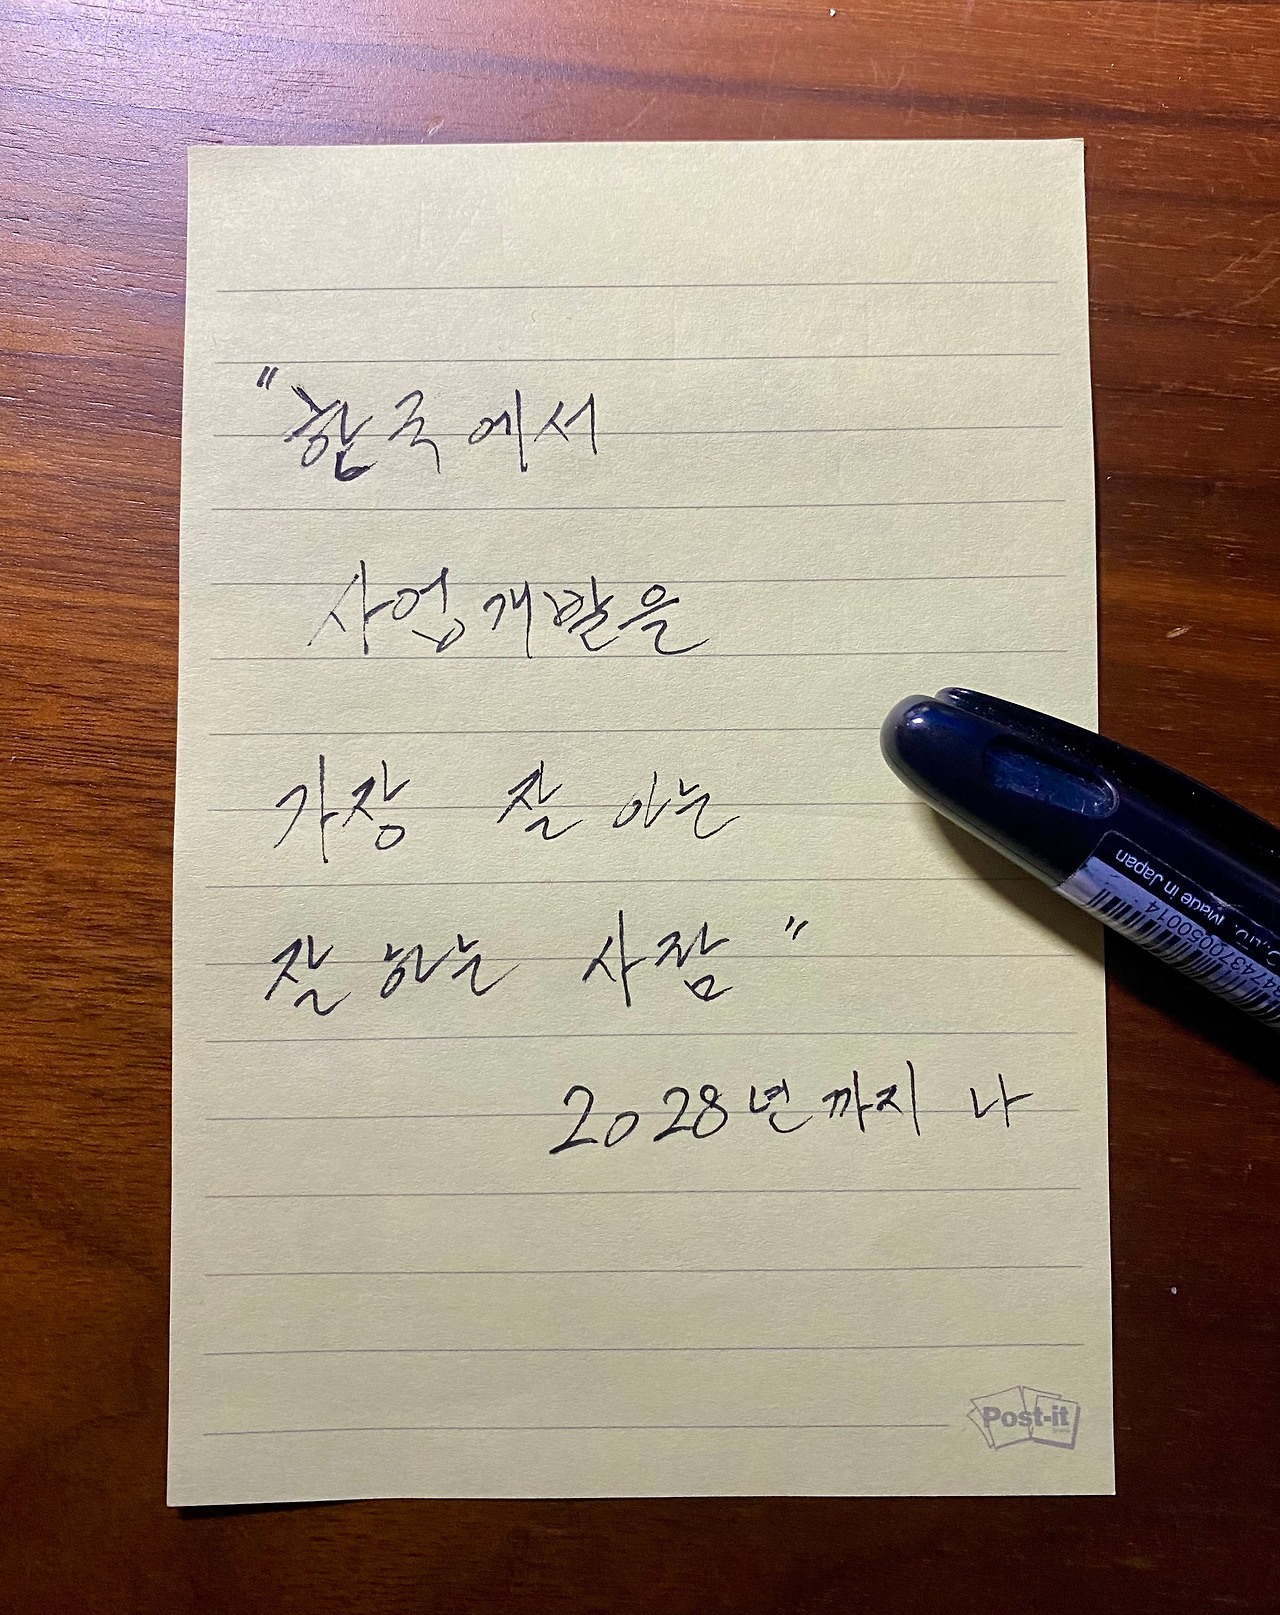 "한국에서
사업개발을
가장 잘 아는
잘 하는 사람"
2028년까지 나
Made in Japan
Post-it